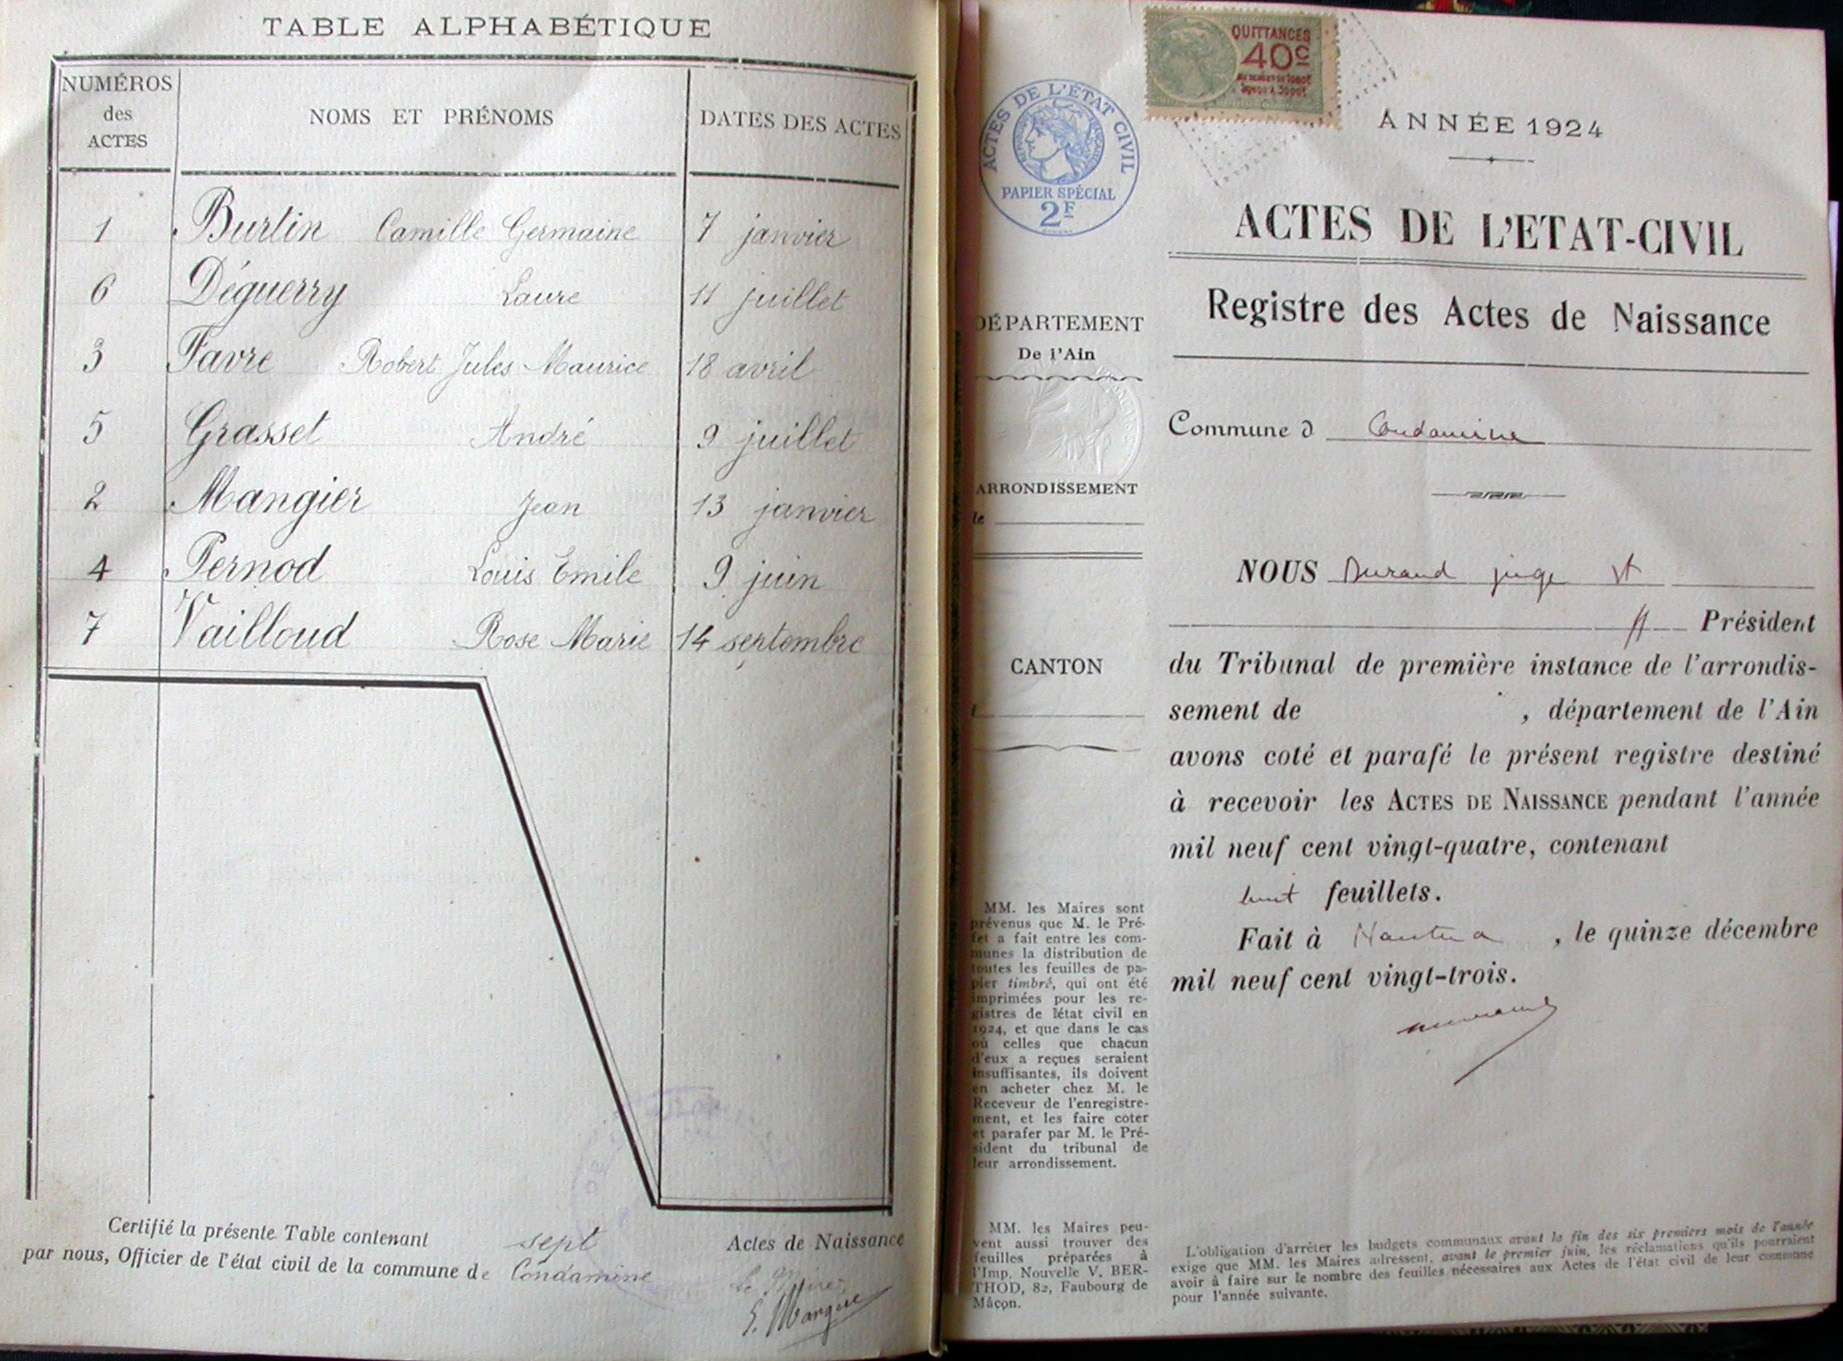 TABLE ALPHABÉTIQUE
NUMÉROS des ACTES
NOMS ET PRÉNOMS
DATES DES ACTES
1 Burtin Camille Germaine 7 janvier
6 Déguerry Laure 11 juillet
3 Favre Robert Jules Maurice 18 avril
5 Grasset André 9 juillet
2 Mangier Jean 13 janvier
4 Pernod Louis Emile 9 juin
7 Vailloud Rose Marie 14 septembre
Certifié la présente Table contenant sept Actes de Naissance
par nous, Officier de l'état civil de la commune de Condamine
le Maire,
QUITTANCES
40c
ACTES DE L'ÉTAT CIVIL
PAPIER SPÉCIAL
2F
DÉPARTEMENT
De l'Ain
ARRONDISSEMENT
de
CANTON
MM. les Maires sont
prévenus que M. le Pré-
fet a fait entre les com-
munes la distribution de
toutes les feuilles de pa-
pier timbré, qui ont été
imprimées pour les re-
gistres de létat civil en
1924, et que dans le cas
où celles que chacun
d'eux a reçues seraient
insuffisantes, ils doivent
en acheter chez M. le
Receveur de l'enregistre-
ment, et les faire coter
et parafer par M. le Pré-
sident du tribunal de
leur arrondissement.
MM. les Maires peu-
vent aussi trouver des
feuilles préparées à
l'Imp. Nouvelle V. BER-
THOD, 82, Faubourg de
Mâcon.
ANNÉE 1924
ACTES DE L'ETAT-CIVIL
Registre des Actes de Naissance
Commune d Condamine
NOUS Durand juge st
Président
du Tribunal de première instance de l'arrondis-
sement de , département de l'Ain
avons coté et parafé le présent registre destiné
à recevoir les ACTES DE NAISSANCE pendant l'année
mil neuf cent vingt-quatre, contenant
huit feuillets.
Fait à Nantua , le quinze décembre
mil neuf cent vingt-trois.
L'obligation d'arrêter les budgets communaux avant la fin des six premiers mois de l'année
exige que MM. les Maires adressent, avant le premier juin, les réclamations qu'ils pourraient
avoir à faire sur le nombre des feuilles nécessaires aux Actes de l'état civil de leur commune
pour l'année suivante.